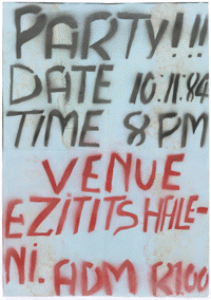 PARTY!!!
DATE 10.11.84
TIME 8PM
VENUE
EZITITSHALE-
NI. ADM R1.00